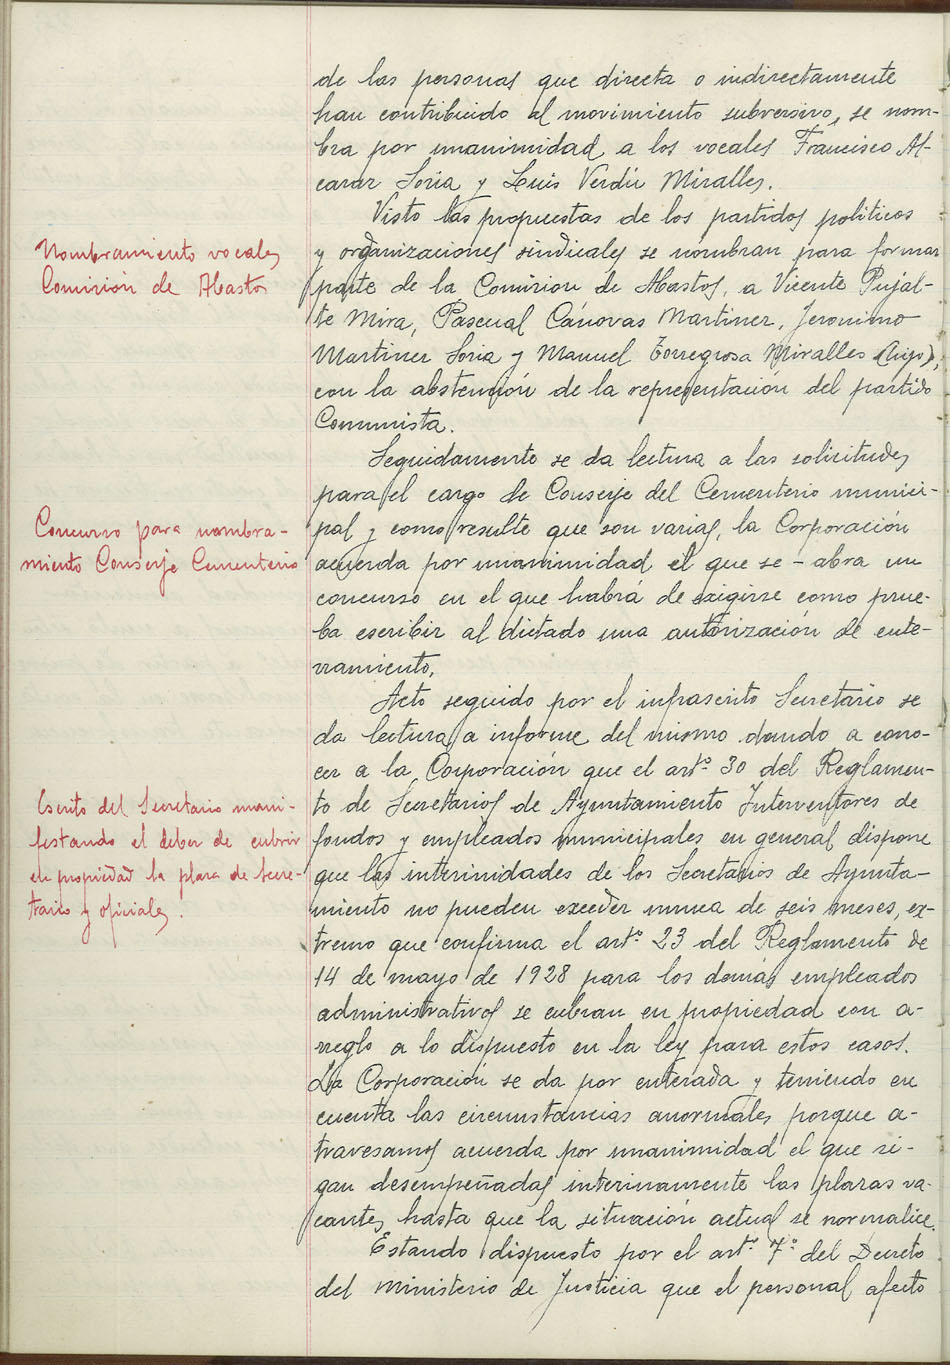 de las personas que directa o indirectamente
han contribuido al movimiento subversivo, se nom-
bra por unanimidad a los vocales Francisco Al-
carar Soria y Luis Verdú Miralles.
Visto las propuestas de los partidos politicos
y organizaciones sindicales se nombran para formar
parte de la Comision de Abastos, a Vicente Pujal-
te Mira, Pascual Cánovas Martiner, Jeronimo
Martiner Soria y Manuel Torregrosa Miralles (hijo),
con la abstención de la representación del partido
Comunista.
Seguidamente se da lectura a las solicitudes
para el cargo de Conserje del Cementerio munici-
pal y como resulte que son varias, la Corporación
acuerda por unanimidad el que se - abra un
concurso en el que habrá de exigirse como prue-
ba escribir al dictado una autorización de ente-
rramiento.
Acto seguido por el infrascrito Secretario se
da lectura a informe del mismo dando a cono-
cer a la Corporación que el artº 30 del Reglamen-
to de Secretarios de Ayuntamiento Interventores de
fondos y empleados municipales en general dispone
que las interinidades de los Secretarios de Ayunta-
miento no pueden exceder nunca de seis meses, ex-
tremo que confirma el artº 23 del Reglamento de
14 de mayo de 1928 para los demás empleados
administrativos se cubran en propiedad con a-
rreglo a lo dispuesto en la ley para estos casos.
La Corporación se da por enterada y teniendo en
cuenta las circunstancias anormales porque a-
travesamos acuerda por unanimidad el que si-
gan desempeñadas interinamente las plazas va-
cantes hasta que la situación actual se normalice.
Estando dispuesto por el artº 7º del Decreto
del ministerio de Justicia que el personal afecto
Nombramiento vocales
Comisión de Abastos
Concurso para nombra-
miento Conserje Cementerio
Escrito del Secretario mani-
festando el deber de cubrir
en propiedad la plaza de Secre-
tario y oficiales.